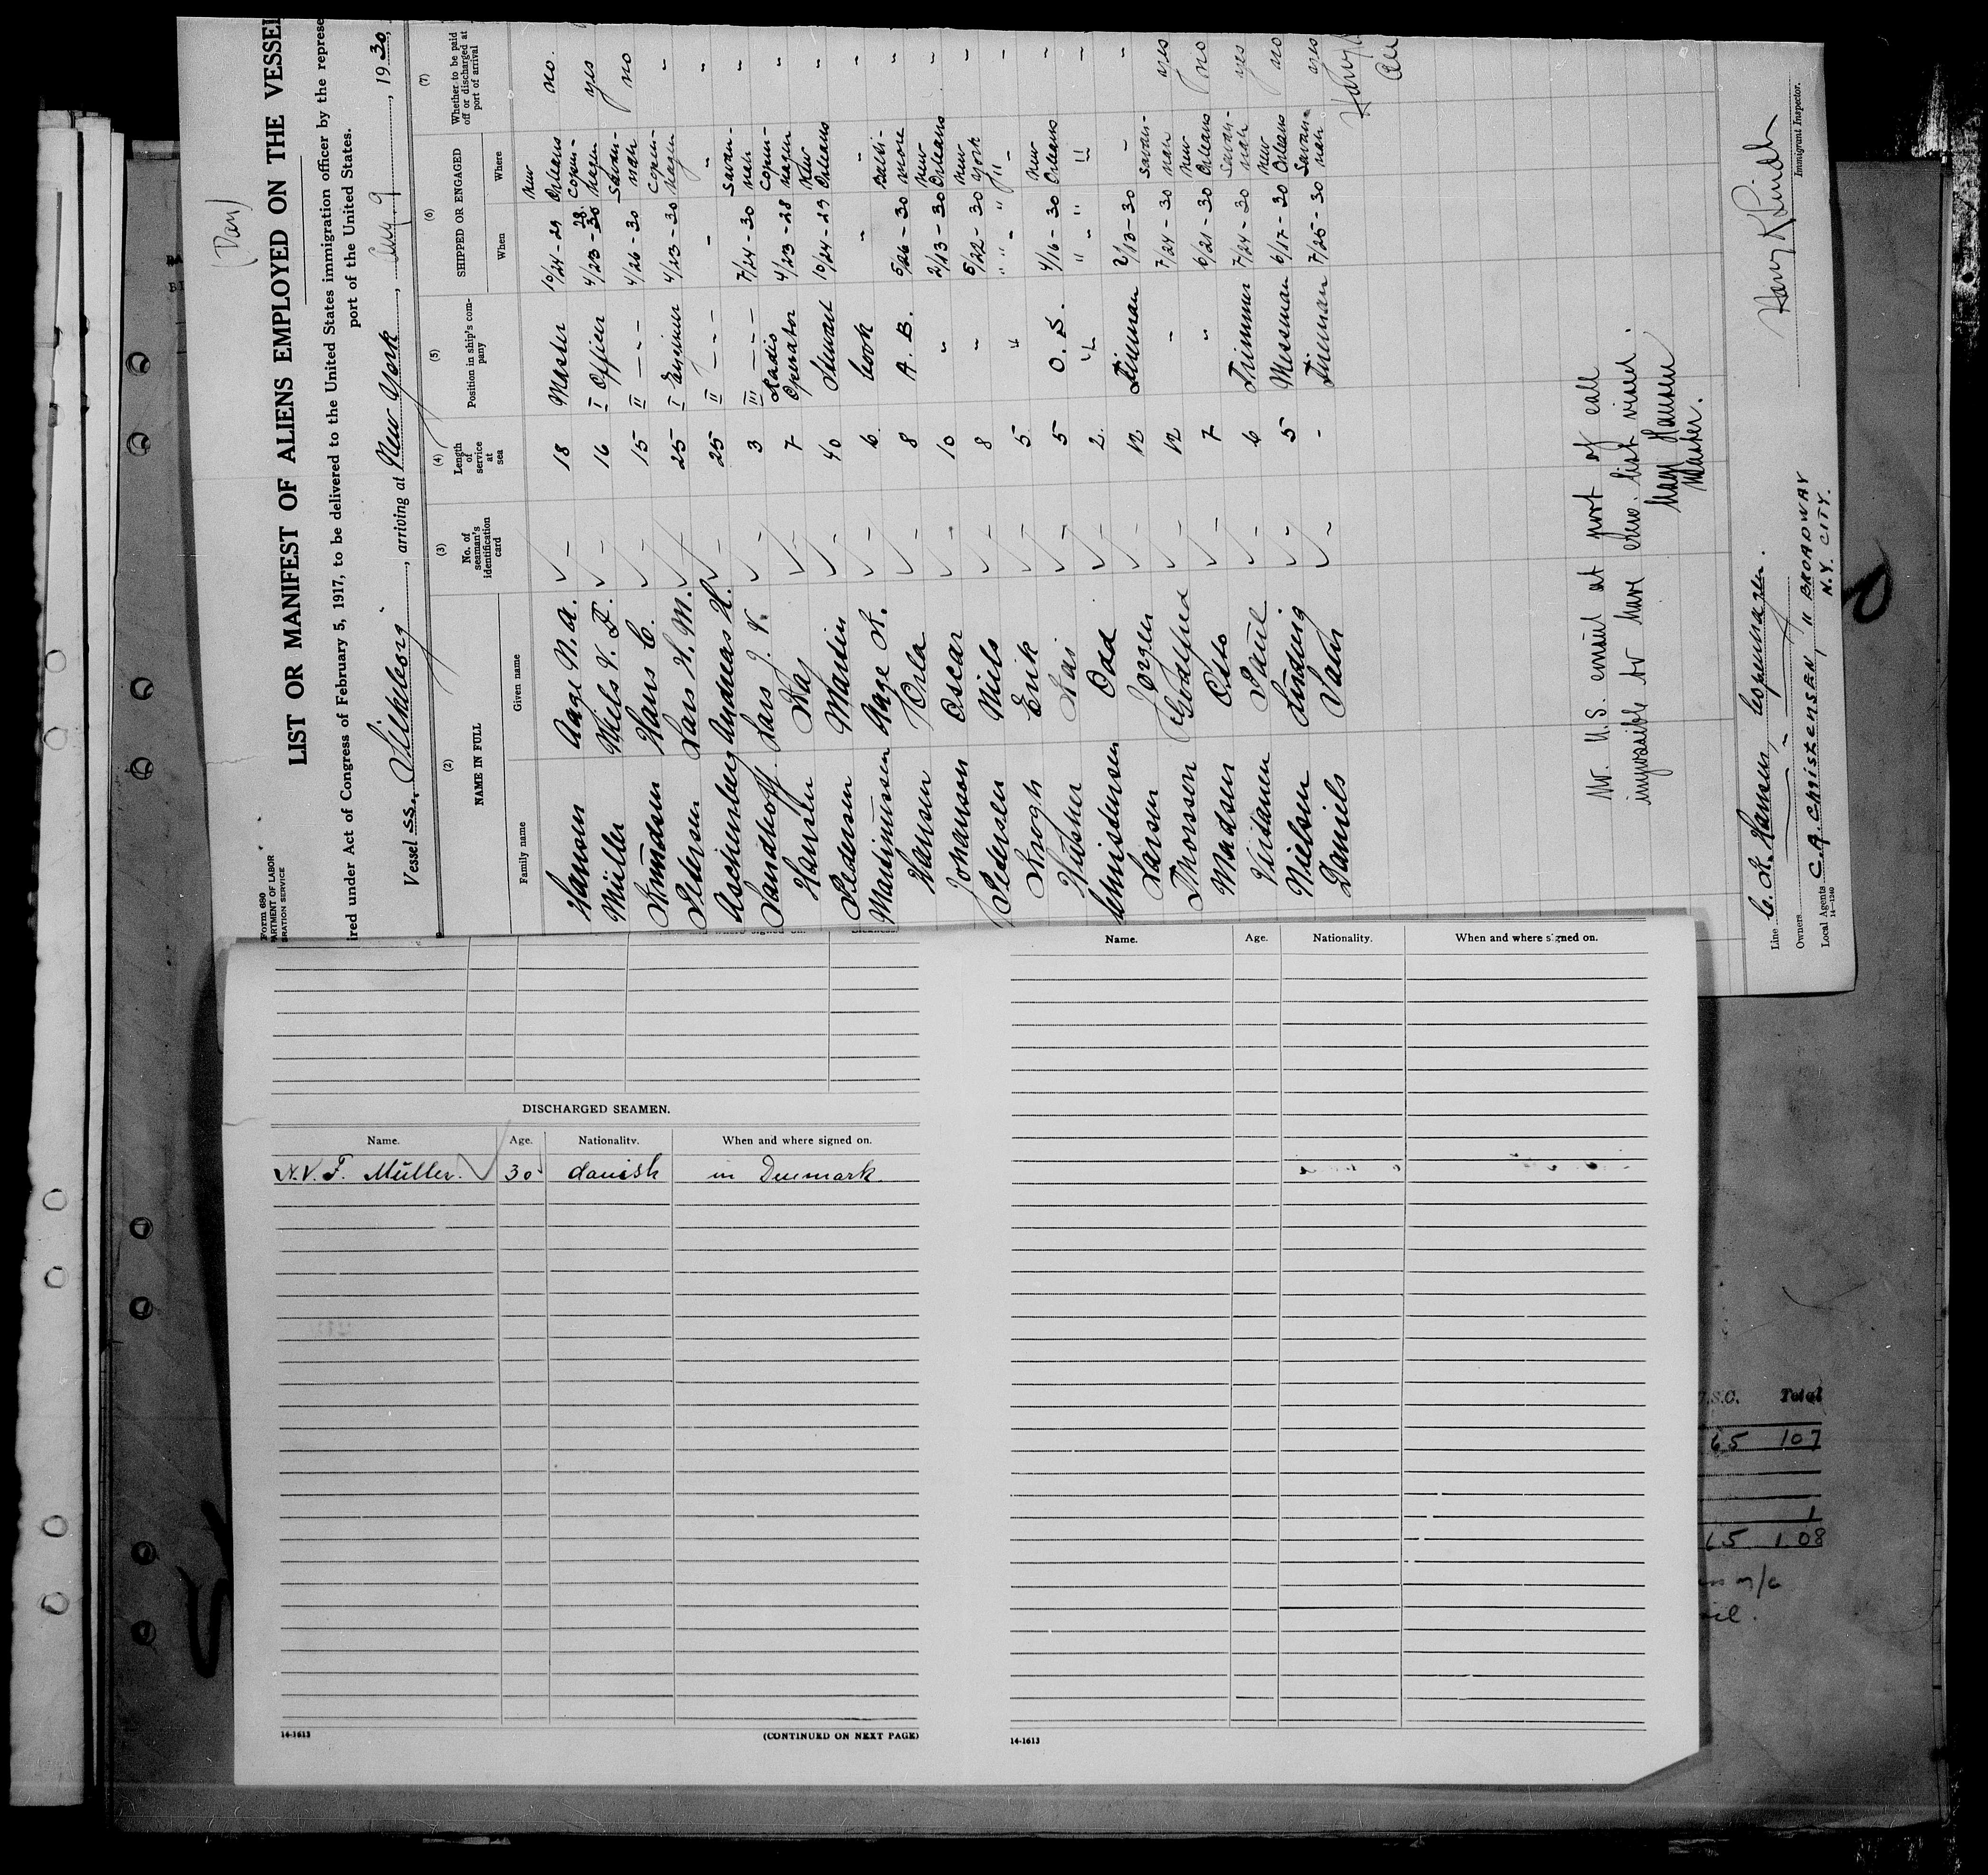 (Dan)
Form 680
LIST OR MANIFEST OF ALIENS EMPLOYED ON THE VESSEL
ired under Act of Congress of February 5, 1917, to be delivered to the United States immigration officer by the represe
port of the United States.
Vessel SS. , arriving at New York , Aug. 9 , 1930,
(2) (3) (4) (5) (6) (7)
NAME IN FULL No. of seaman's identification card Length of service at sea Position in ship's company SHIPPED OR ENGAGED Whether to be paid off or discharged at port of arrival
Family name Given name When Where
Hansen Aage N. A. ✓ – 18 Master 10/24 - 29 New Orleans no.
Müller Niels V. F. ✓ – 16 I Officer 4/23 - 28 Copenhagen yes
Knudsen Hans C. ✓ – 15 II – – – 4/26 - 30 Savannah no
Petersen Lars H. M. ✓ – 25 I Engineer 4/23 - 30 Copenhagen –
Aschenberg Andreas H. ✓ – 25 II – – – – – –
Sandhoff Lars J. V. ✓ – 3 III – – – 7/24 - 30 Savannah –
Hansen Kaj ✓ – 7 Radio Operator 4/23 - 28 Copenhagen –
Pedersen Martin ✓ – 40 Steward 10/24 - 29 New Orleans –
Martinussen Aage K. ✓ – 6. Cook – – –
Hansen Orla ✓ – 8 A. B. 5/26 - 30 Baltimore –
Johanson Oscar ✓ – 10 " 2/13 - 30 New Orleans –
Pedersen Niels ✓ – 8 – 5/22 - 30 New York –
Krogh Erik ✓ – 5 " " " – " –
Kai ✓ – 5 O. S. 4/16 - 30 New Orleans –
Christensen Odd ✓ – 2. " " " " –
Larsen Jörgen ✓ – 12 Fireman 2/13 - 30 – –
Thorsson Godfred ✓ – 12 – 7/24 - 30 Savannah yes
Madsen Otto ✓ – 7 " 6/21 - 30 New Orleans no
Virtanen Paul ✓ – 6 Trimmer 7/24 - 30 Savannah yes
Nielsen Ludvig ✓ – 5 Messman 6/17 - 30 New Orleans no
Daniels John ✓ – - Fireman 7/25 - 30 Savannah yes
No U.S. consul at port of call
impossible to have crew list visaed.
Aage Hansen
Master.
Line C. K. Hansen, Copenhagen.
Owners
Local Agents C. A. Christensen, 11 BROADWAY
N.Y. CITY.
14—1240
Immigrant Inspector.
DISCHARGED SEAMEN.
Name. Age. Nationality. When and where signed on.
N.V. F. Müller. ✓ 30 danish in Denmark.
14-1613 (CONTINUED ON NEXT PAGE)
Name. Age. Nationality. When and where signed on.
14-1613
U.S.C. Total
65 107
1
65 108